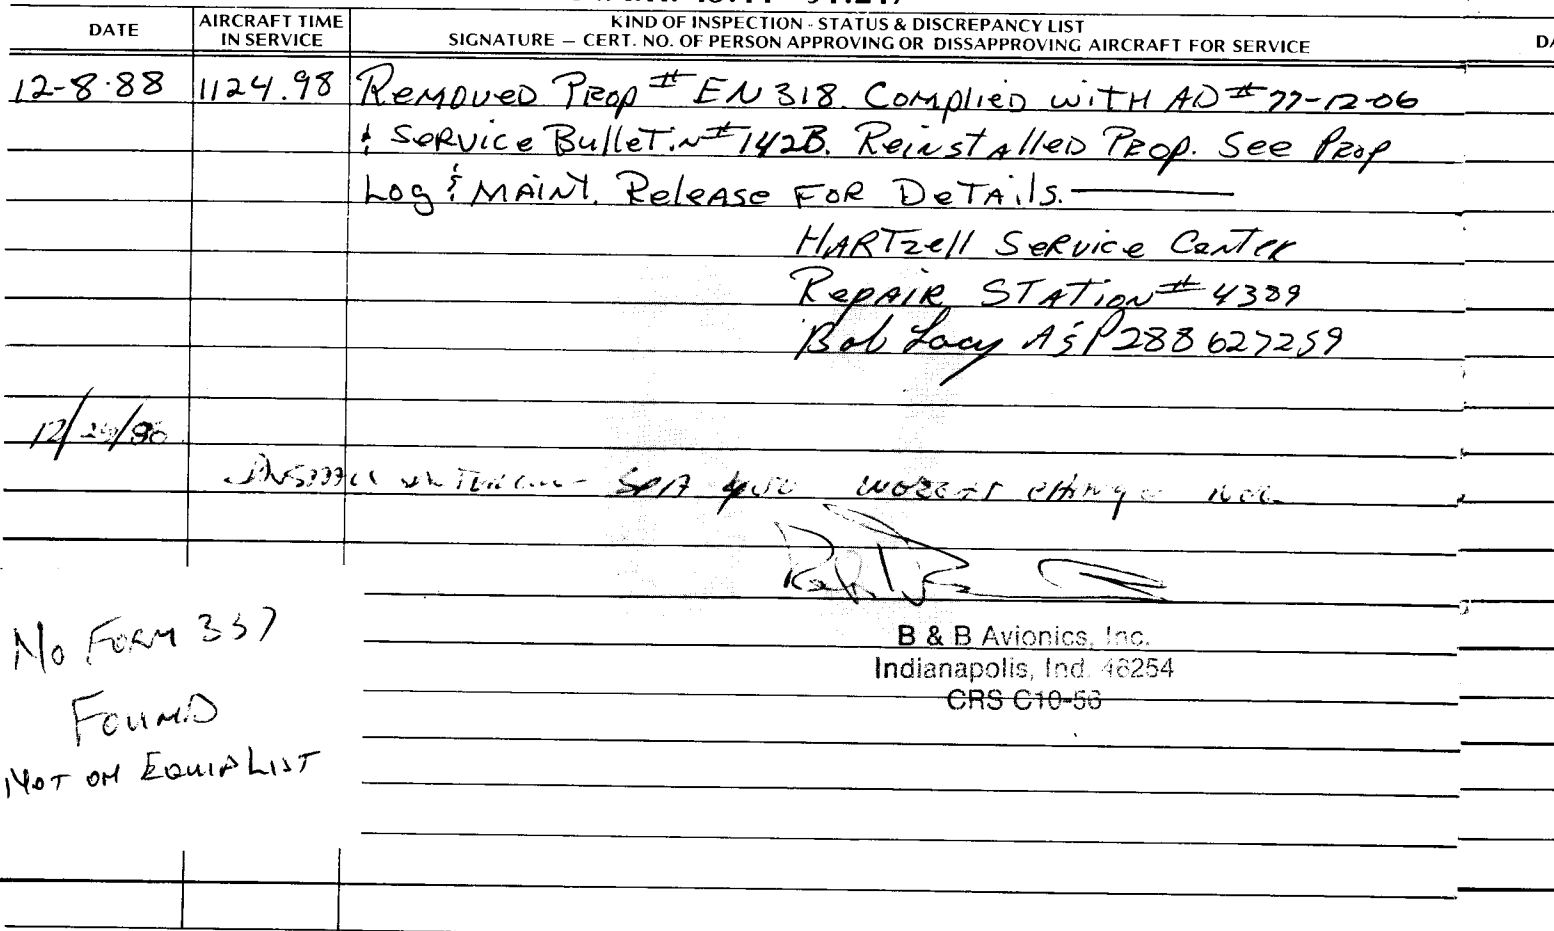 DATE
AIRCRAFT TIME
IN SERVICE
KIND OF INSPECTION - STATUS & DISCREPANCY LIST
SIGNATURE — CERT. NO. OF PERSON APPROVING OR DISSAPPROVING AIRCRAFT FOR SERVICE
12-8-88 1124.98 Removed Prop # EN318. Complied with AD # 77-12-06
& Service Bulletin # 142B. Reinstalled Prop. See Prop
Log & MAINT. Release FOR Details.
HARTzell Service Center
Repair Station # 4389
Bob Lacy A&P 288627259
12/
Install
No Form 337
Found
Not on Equip List
B & B Avionics, Inc.
Indianapolis, Ind. 46254
CRS C10-56